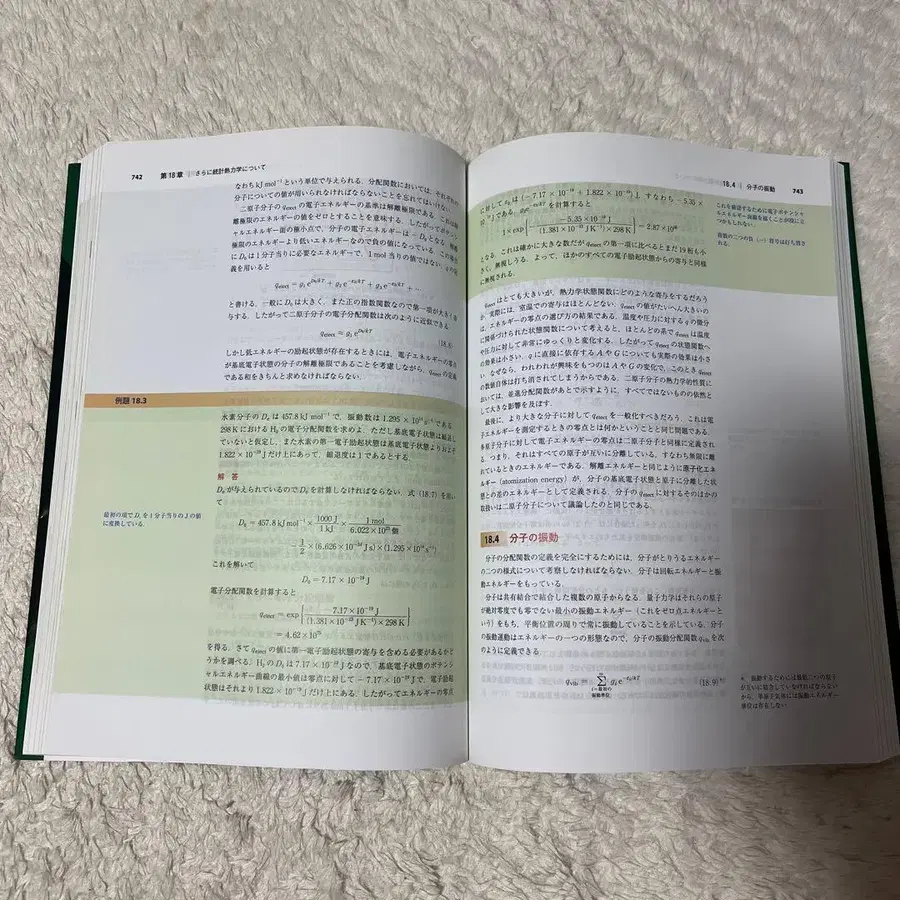 742 第18章 さらに統計熱力学について
なわち kJ mol⁻¹ という単位で与えられる.分配関数においては,それぞれの
分子についての値が用いられなければならないことを忘れてはいけない.
二原子分子の q_elect の電子エネルギーの基準は解離極限である.これは解
離極限のエネルギーの値をゼロとすることを意味する.したがってポテンシ
ャルエネルギー面の極小点で,分子の電子エネルギーは − D₀ となる.
極限のエネルギーより低いエネルギーなので負の値になっている.この場合
に D₀ は1分子当りに必要なエネルギーで,1 mol 当りの値ではない.q の定
義を用いると
と書ける.一般に D₀ は大きく,また正の指数関数なので第一項が大きく寄
与する.したがって二原子分子の電子分配関数は次のように近似できる.
q_elect ≈ g₁ e^{D₀/kT}
(18.8)
しかし低エネルギーの励起状態が存在するときには,電子エネルギーの零点
が基底電子状態の分子の解離極限であることを考慮しながら,q_elect の定義
である和をきちんと求めなければならない.
例題 18.3
水素分子の D₀ は 457.8 kJ mol⁻¹ で,振動数は 1.295 × 10¹⁴ s⁻¹ である.
298 K における H₂ の電子分配関数を求めよ.ただし基底電子状態は縮退し
ていないと仮定し,また水素の第一電子励起状態は基底電子状態よりおよそ
1.822 × 10⁻¹⁸ J だけ上にあって,縮退度は 1 であるとする.
解 答
が与えられているので を計算しなければならない.式 (18.7) を用い
て,
最初の項で を 1 分子当りの J の値
に変換している.
= 457.8 kJ mol⁻¹ × 1000 J / 1 kJ × 1 mol / 6.022 × 10²³ 個
− 1/2 × (6.626 × 10⁻³⁴ J s) × (1.295 × 10¹⁴ s⁻¹)
これを解いて
= 7.17 × 10⁻¹⁹ J
電子分配関数を計算すると
q_elect = exp [7.17 × 10⁻¹⁹ J / (1.381 × 10⁻²³ J K⁻¹) × 298 K]
= 4.62 × 10⁷⁵
を得る.さて q_elect の値に第一電子励起状態の寄与を含める必要があるかど
うかを調べる.H₂ の は 7.17 × 10⁻¹⁹ J なので,基底電子状態のポテンシ
ャルエネルギー曲線の最小値は零点に対して − 7.17 × 10⁻¹⁹ J で,電子励起
状態はそれより 1.822 × 10⁻¹⁸ J だけ上にある.したがってエネルギーの零点
18.4 分子の振動 743
に対して は (− 7.17 × 10⁻¹⁹ + 1.822 × 10⁻¹⁸) J,すなわち − 5.35 ×
J である. を計算すると
1 × exp [−5.35 × 10⁻¹⁹ J / (1.381 × 10⁻²³ J K⁻¹) × 298 K] = 2.87 × 10
となる.これは確かに大きな数だが q_elect の第一項に比べるとまだ 19 桁も小
さく,無視しうる.よって,ほかのすべての電子励起状態からの寄与も同様
に無視される.
これを確認するために電子ポテンシャ
ルエネルギー曲線を描くことが役に立
つかもしれない.
指数の二つの負 (−) 符号は打ち消さ
れる.
q_elect はとても大きいが,熱力学状態関数にどのような寄与をするだろう
か.実際には,室温での寄与はほとんどない.q_elect の値がたいへん大きいの
は,エネルギーの零点の選び方の結果である.温度や圧力に対する q の微分
に関係づけられた状態関数について考えると,ほとんどの系で q_elect は温度
や圧力に対して非常にゆっくりと変化する.したがって q_elect の状態関数へ
の効果は小さい.q に直接に依存する A や G についても実際の効果は小さ
い.なぜなら,われわれが興味をもつのは A や G の変化で,このとき q_elect
の数値自体は打ち消されてしまうからである.二原子分子の熱力学的性質に
おいては,並進分配関数があとで示すように,すべてではないものの依然と
して大きな影響を及ぼす.
最後に,より大きな分子に対して q_elect を一般化すべきだろう.これは電
子エネルギーを測定するときの零点とは何かということと同じ問題である.
多原子分子に対して電子エネルギーの零点は二原子分子と同様に定義され
る.つまり,それはすべての原子が互いに分離している,すなわち無限に離
れているときのエネルギーである.解離エネルギーと同じように原子化エネ
ルギー (atomization energy) が,分子の基底電子状態と原子に分離した状
態との差のエネルギーとして定義される.分子の q_elect に対するそのほかの
取扱いは二原子分子について議論したのと同じである.
18.4 分子の振動
分子の分配関数の定義を完全にするためには,分子がとりうるエネルギー
の二つの様式について考察しなければならない.分子は回転エネルギーと振
動エネルギーをもっている.
分子は共有結合で結合した複数の原子からなる.量子力学はそれらの原子
が絶対零度でも零でない最小の振動エネルギー(これをゼロ点エネルギーと
いう)をもち,平衡位置の周りで常に振動していることを示している.分子
の振動運動はエネルギーの一つの形態なので,分子の振動分配関数 q_vib を次
のように定義できる.
(18.9)*
* 振動するためには最低二つの原子
が互いに結合していなければならない
から,単原子気体には振動エネルギー
単位は存在しない.